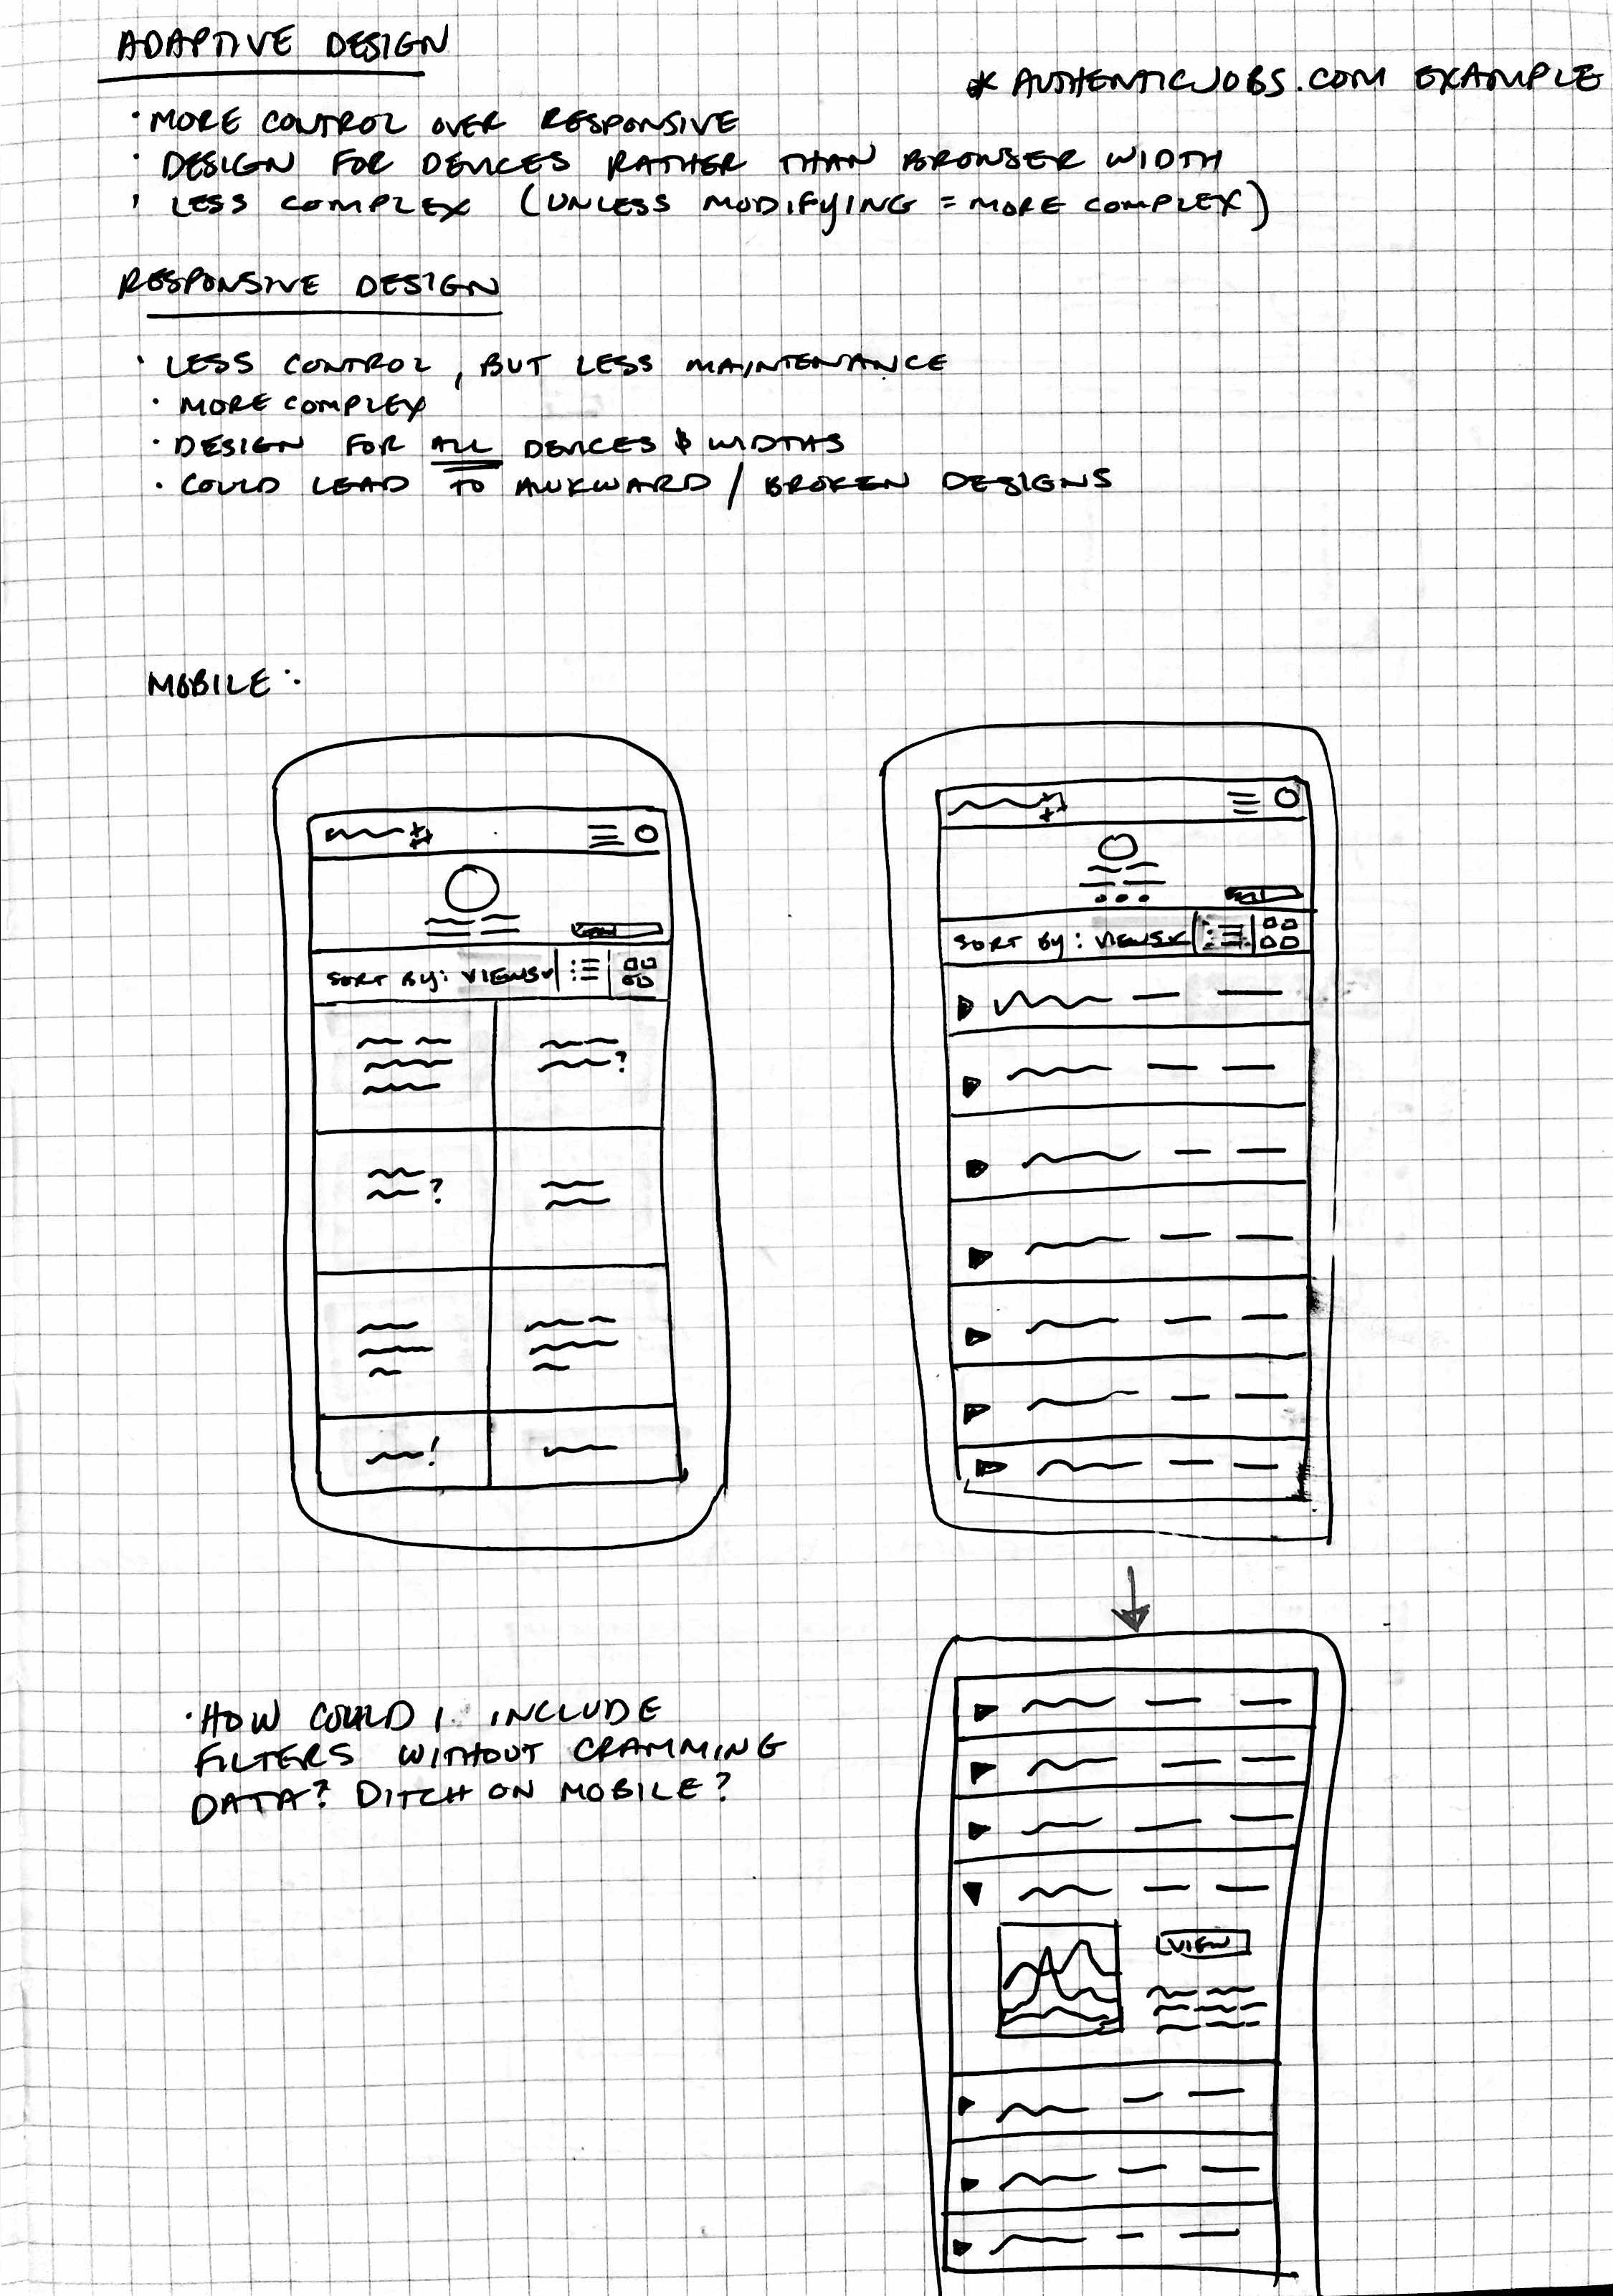 ADAPTIVE DESIGN
* AUTHENTICJOBS.COM EXAMPLE
· MORE CONTROL OVER RESPONSIVE
· DESIGN FOR DEVICES RATHER THAN BROWSER WIDTH
· LESS COMPLEX (UNLESS MODIFYING = MORE COMPLEX)
RESPONSIVE DESIGN
· LESS CONTROL, BUT LESS MAINTENANCE
· MORE COMPLEX
· DESIGN FOR ALL DEVICES & WIDTHS
· COULD LEAD TO AWKWARD / BROKEN DESIGNS
MOBILE:
SORT BY: VIEWS
SORT BY: VIEWS
· HOW COULD I INCLUDE
FILTERS WITHOUT CRAMMING
DATA? DITCH ON MOBILE?
VIEW